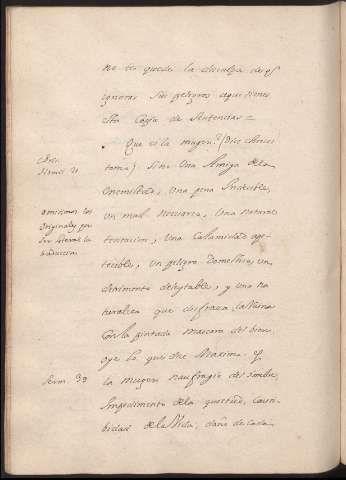 no te quede la disculpa de q.e
ignoras sus peligros aqui tienes
esta Copia de Sentencias =
Que es la muger? (Dice Chrisos
tomo) Sino Una Amiga de la
Enemistad, Una pena Ineludible,
un mal necesario, Una natural
tentacion, Una Calamidad ape-
tecible, un peligro domestico, un
detrimento deleytable, y una na
turaleza que disfraza la Ruina
Con la pintada mascara del bien.
oye lo que dice Maximo. Es
la muger naufragio del hombre,
Impedimento de la quietud, Cauti-
bidad de la Vida, daño de cada
Chris.
Sermo 21
omitimos los
Originales por
ser literal la
traduccion
Serm. 39